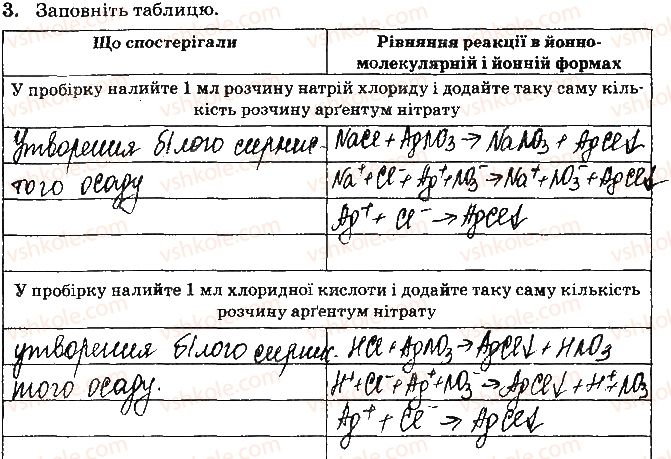 3. Заповніть таблицю.
Що спостерігали
Рівняння реакції в йонно-
молекулярній і йонній формах
У пробірку налийте 1 мл розчину натрій хлориду і додайте таку саму кіль-
кість розчину арґентум нітрату
Утворення білого сирнис-
того осаду
NaCl + AgNO₃ → NaNO₃ + AgCl↓
Na⁺ + Cl⁻ + Ag⁺ + NO₃⁻ → Na⁺ + NO₃⁻ + AgCl↓
Ag⁺ + Cl⁻ → AgCl↓
У пробірку налийте 1 мл хлоридної кислоти і додайте таку саму кількість
розчину арґентум нітрату
утворення білого сирнис-
того осаду.
HCl + AgNO₃ → AgCl↓ + HNO₃
H⁺ + Cl⁻ + Ag⁺ + NO₃⁻ → AgCl↓ + H⁺ + NO₃⁻
Ag⁺ + Cl⁻ → AgCl↓
vshkole.com